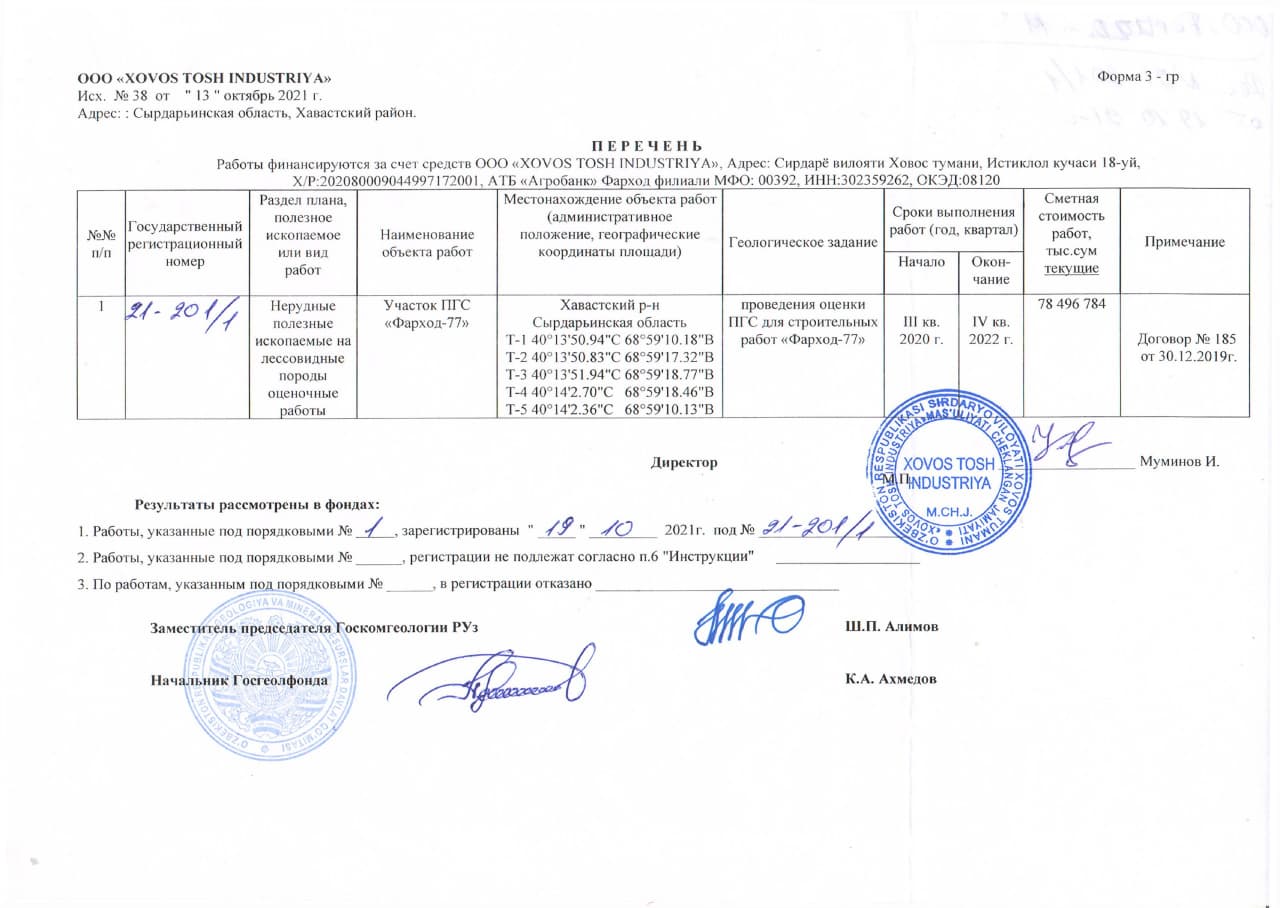 ООО «XOVOS TOSH INDUSTRIYA»
Форма 3 - гр
Исх. № 38 от " 13 " октябрь 2021 г.
Адрес: : Сырдарьинская область, Хавастский район.
П Е Р Е Ч Е Н Ь
Работы финансируются за счет средств ООО «XOVOS TOSH INDUSTRIYA», Адрес: Сирдарё вилояти Ховос тумани, Истиклол кучаси 18-уй,
Х/Р:202080009044997172001, АТБ «Агробанк» Фарход филиали МФО: 00392, ИНН:302359262, ОКЭД:08120
№№ п/п
Государственный регистрационный номер
Раздел плана, полезное ископаемое или вид работ
Наименование объекта работ
Местонахождение объекта работ (административное положение, географические координаты площади)
Геологическое задание
Сроки выполнения работ (год, квартал)
Начало
Окон-чание
Сметная стоимость работ, тыс.сум текущие
Примечание
1
21-201/1
Нерудные полезные ископаемые на лессовидные породы оценочные работы
Участок ПГС «Фарход-77»
Хавастский р-н
Сырдарьинская область
Т-1 40°13'50.94"С 68°59'10.18"В
Т-2 40°13'50.83"С 68°59'17.32"В
Т-3 40°13'51.94"С 68°59'18.77"В
Т-4 40°14'2.70"С 68°59'18.46"В
Т-5 40°14'2.36"С 68°59'10.13"В
проведения оценки ПГС для строительных работ «Фарход-77»
III кв. 2020 г.
IV кв. 2022 г.
78 496 784
Договор № 185 от 30.12.2019г.
Директор
М.П
Муминов И.
O'ZBEKISTON RESPUBLIKASI SIRDARYO VILOYATI XOVOS TUMANI
«XOVOS TOSH INDUSTRIYA» MAS'ULIYATI CHEKLANGAN JAMIYATI
XOVOS TOSH
INDUSTRIYA
M.CH.J.
Результаты рассмотрены в фондах:
1. Работы, указанные под порядковыми № 1, зарегистрированы " 19 " 10 2021г. под № 21-201/1
2. Работы, указанные под порядковыми № ______, регистрации не подлежат согласно п.6 "Инструкции"
3. По работам, указанным под порядковыми № ______, в регистрации отказано
Заместитель председателя Госкомгеологии РУз
Ш.П. Алимов
Начальник Госгеолфонда
К.А. Ахмедов
O'ZBEKISTON RESPUBLIKASI GEOLOGIYA VA MINERAL RESURSLAR DAVLAT QO'MITASI